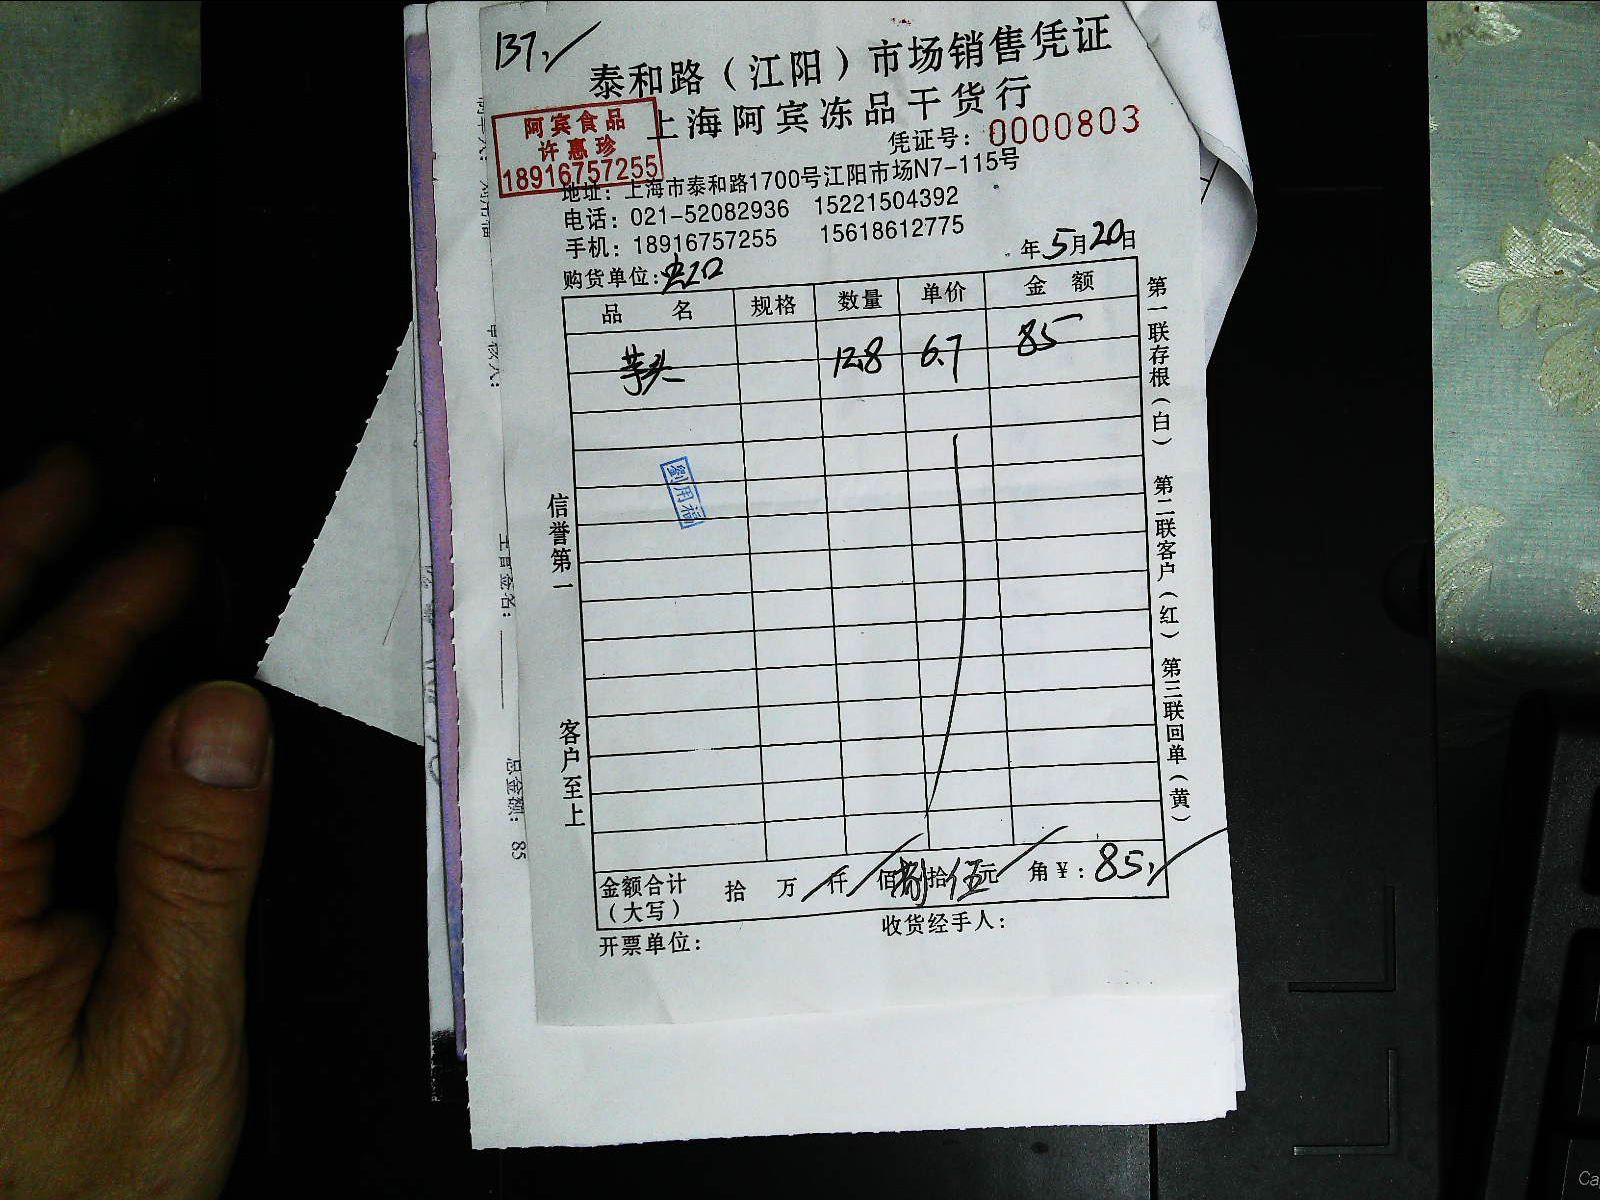 137.
泰和路（江阳）市场销售凭证
上海阿宾冻品干货行
阿宾食品
许惠珍
18916757255
凭证号：0000803
地址：上海市泰和路1700号江阳市场N7-115号
电话：021-52082936 15221504392
手机：18916757255 15618612775
年5月20日
购货单位：
品 名 规格 数量 单价 金 额
芋头 12.8 6.7 85
劉用福
信誉第一
客户至上
第一联存根（白） 第二联客户（红） 第三联回单（黄）
金额合计（大写） 拾 万 仟 佰捌拾伍元 角￥：85.
开票单位： 收货经手人：
总金额：85